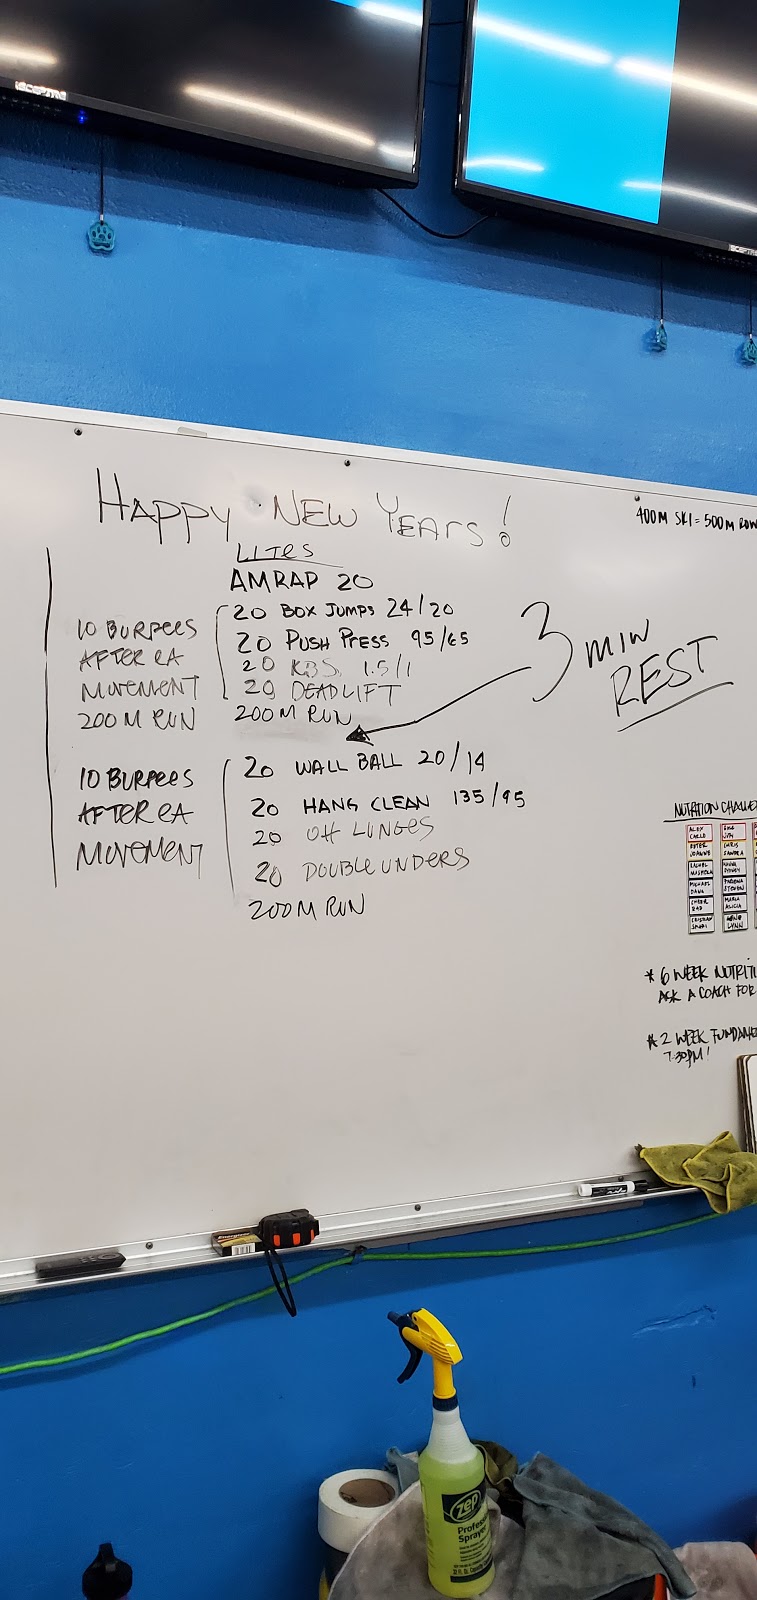 SCEPTRE
SCEPTRE
HAPPY NEW YEARS!
400M SKI = 500M ROW
LITES
AMRAP 20
10 BURPEES
AFTER EA
MOVEMENT
200M RUN
20 BOX JUMPS 24/20
20 PUSH PRESS 95/65
20 KBS 1.5/1
20 DEADLIFT
200M RUN
3 MIN
REST
10 BURPEES
AFTER EA
MOVEMENT
20 WALL BALL 20/14
20 HANG CLEAN 135/95
20 OH LUNGES
20 DOUBLE UNDERS
200M RUN
NUTRITION CHALLE
ALEX
CARLO
PETER
JOANNE
CHRIS
SANDRA
RACHEL
MICHAEL
DANA
STEVEN
MARIA
ALICIA
LYNN
* 6 WEEK NUTRITI
ASK A COACH FOR
* 2 WEEK FUNDAME
7:30PM!
Energizer
ZEP
Professional
Sprayer